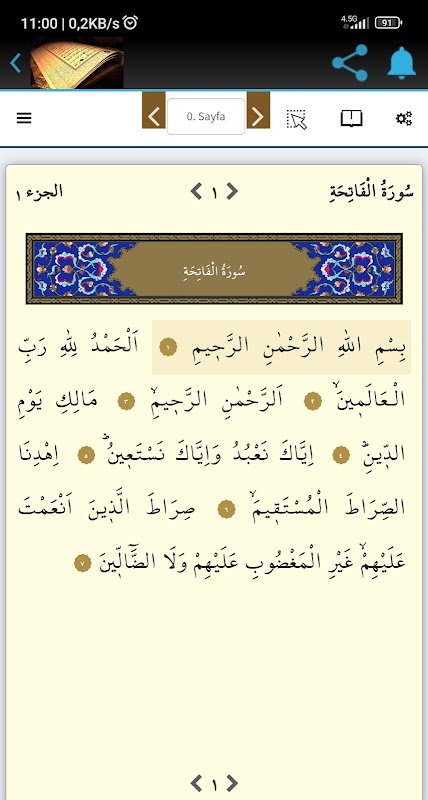 11:00 | 0,2KB/s
4.5G
91
0. Sayfa
سُورَةُ الْفَاتِحَةِ ١ الجزء ١
سُورَةُ الْفَاتِحَةِ
بِسْمِ اللّٰهِ الرَّحْمٰنِ الرَّح۪يمِ ١ اَلْحَمْدُ لِلّٰهِ رَبِّ
الْعَالَم۪ينَۙ ٢ اَلرَّحْمٰنِ الرَّح۪يمِۙ ٣ مَالِكِ يَوْمِ
الدّ۪ينِۜ ٤ اِيَّاكَ نَعْبُدُ وَاِيَّاكَ نَسْتَع۪ينُۜ ٥ اِهْدِنَا
الصِّرَاطَ الْمُسْتَق۪يمَۙ ٦ صِرَاطَ الَّذ۪ينَ اَنْعَمْتَ
عَلَيْهِمْۙ غَيْرِ الْمَغْضُوبِ عَلَيْهِمْ وَلَا الضَّٓالّ۪ينَ ٧
١